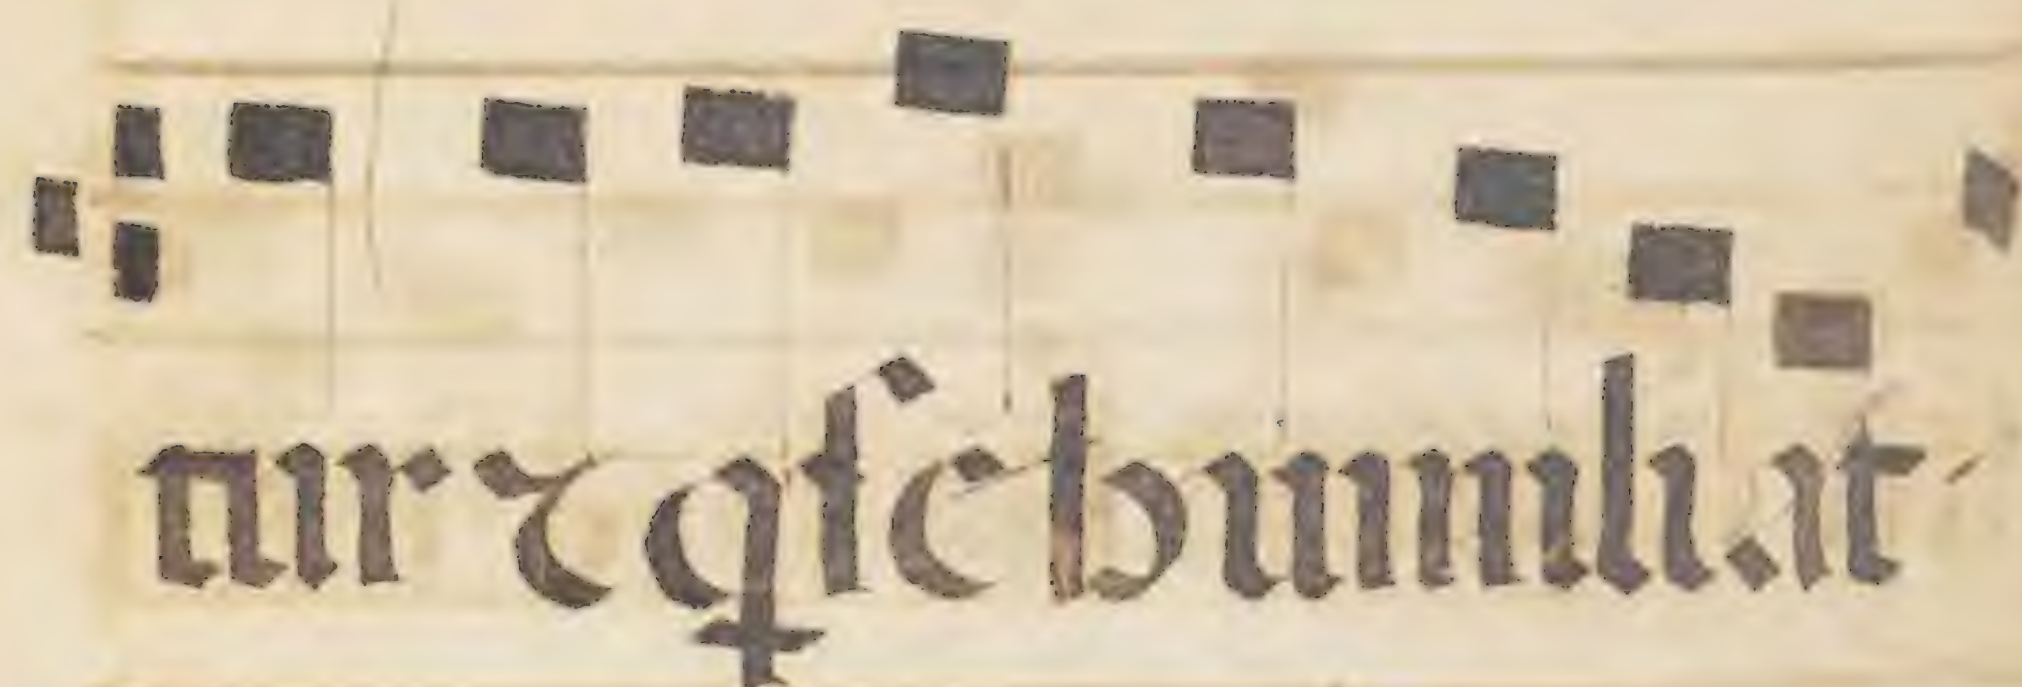 tur ⁊ q̱ se humiliat